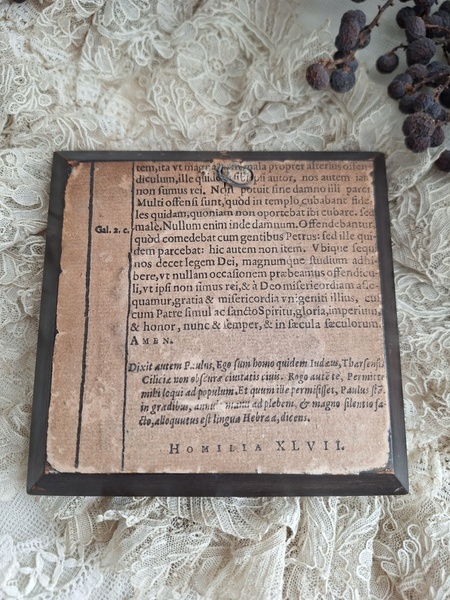 tem, ita vt magna mala propter alterius offen
diculum, ille quidem sibi ipsi autor, nos autem
non sumus rei. Non potuit sine damno illi parci
Multi offensi sunt, quòd in templo cubabant fide
les quidam, quoniam non oportebat ibi cubare. sed
male. Nullum enim inde damnum. Offendebantur,
Gal. 2. c.
quòd comedebat cum gentibus Petrus: sed ille qui
dem parcebat: hic autem non item. Vbique sequ
nos decet legem Dei, magnumque studium adhi-
bere, vt nullam occasionem præbeamus offendicu-
li, vt ipsi non simus rei, & à Deo misericordiam asse-
quamur, gratia & misericordia vnigeniti illius, cui
cum Patre simul ac sancto Spiritu, gloria, imperium,
& honor, nunc & semper, & in sæcula sæculorum.
AMEN.
Dixit autem Paulus, Ego sum homo quidem Iudæus, Tharsensis
Ciliciæ non obscuræ ciuitatis ciuis. Rogo autē te, Permitte
mihi loqui ad populum. Et quum ille permisisset, Paulus
in gradibus, annuit manu ad plebem, & magno silentio fa-
cto, alloquutus est lingua Hebræa, dicens.
HOMILIA XLVII.